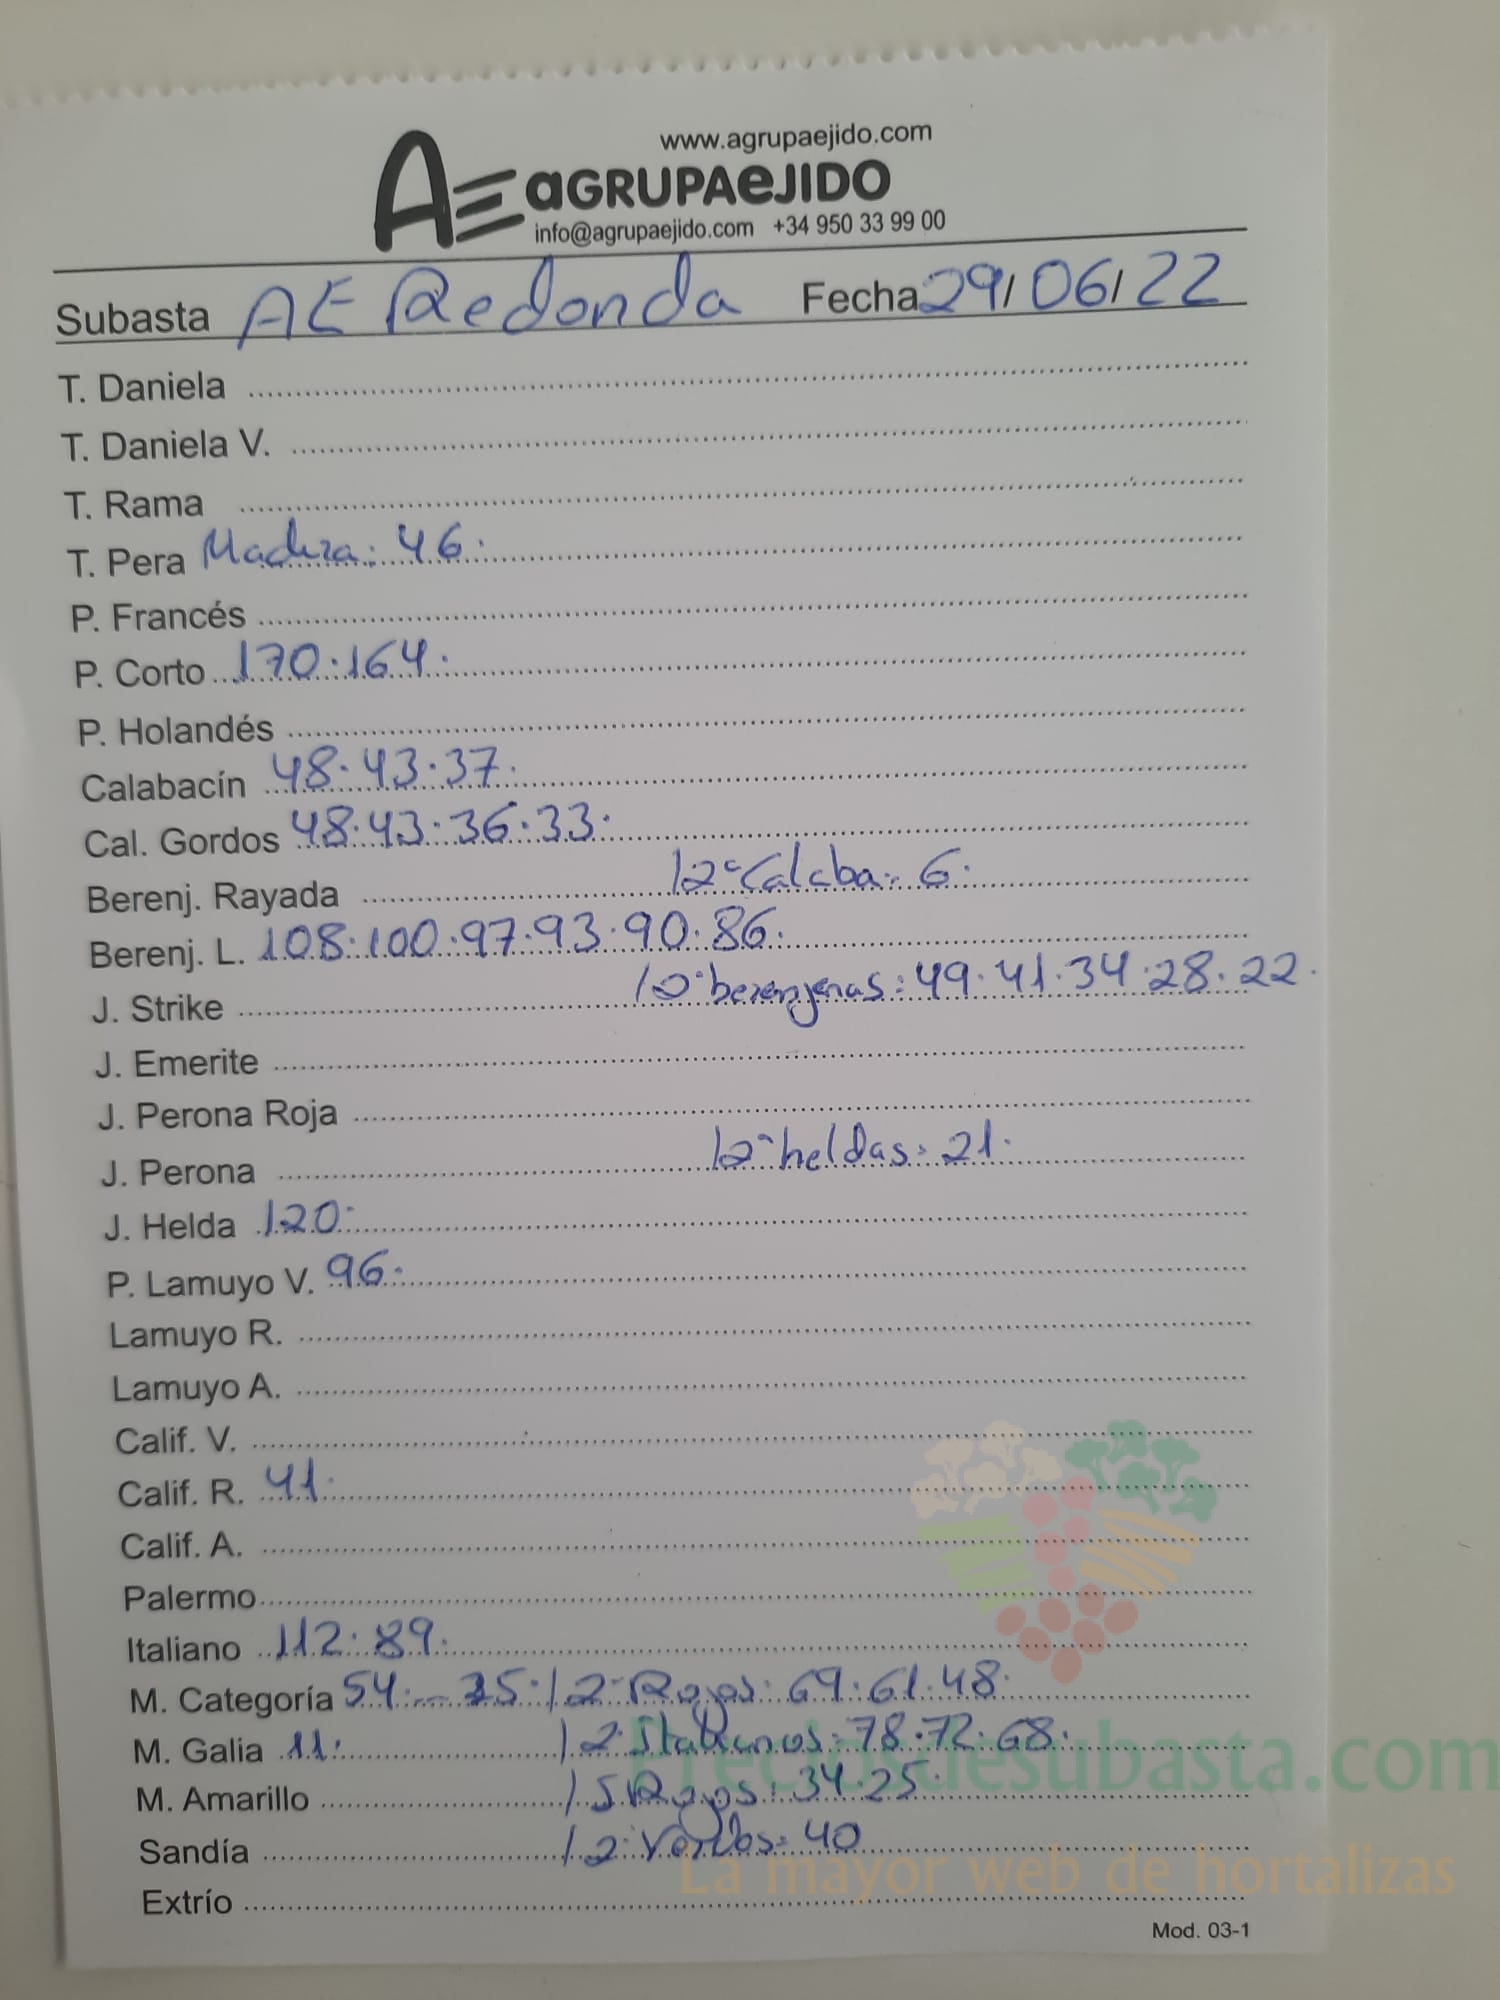 www.agrupaejido.com
AE aGRUPAeJIDO
info@agrupaejido.com +34 950 33 99 00
Subasta AE Redonda Fecha 29/06/22
T. Daniela
T. Daniela V.
T. Rama
T. Pera Madura: 46.
P. Francés
P. Corto 170.164.
P. Holandés
Calabacín 48.43.37.
Cal. Gordos 48.43.36.33.
Berenj. Rayada /2ª Calaba: 6.
Berenj. L. 108.100.97.93.90.86.
J. Strike /2ª berenjenas: 49.41.34.28.22.
J. Emerite
J. Perona Roja
J. Perona /2ª heldas: 21.
J. Helda 120.
P. Lamuyo V. 96.
Lamuyo R.
Lamuyo A.
Calif. V.
Calif. R. 41.
Calif. A.
Palermo
Italiano 112.89.
M. Categoría 54. — 25./2ª Rojos: 69.61.48.
M. Galia 11. /2ª Italianos: 78.72.68.
M. Amarillo /5 Rojos: 34.25.
Sandía /2ª Verdes: 40
Extrío
Mod. 03-1
Preciosdesubasta.com
La mayor web de hortalizas